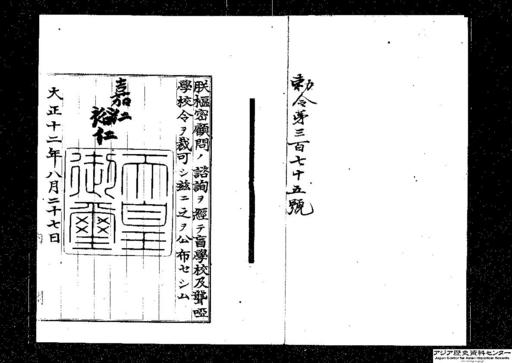 勅令第三百七十五號
朕樞密顧問ノ諮詢ヲ經テ盲學校及聾啞
學校令ヲ裁可シ茲ニ之ヲ公布セシム
嘉仁
裕仁
天皇
御璽
大正十二年八月二十七日
アジア歴史資料センター
Japan Center for Asian Historical Records